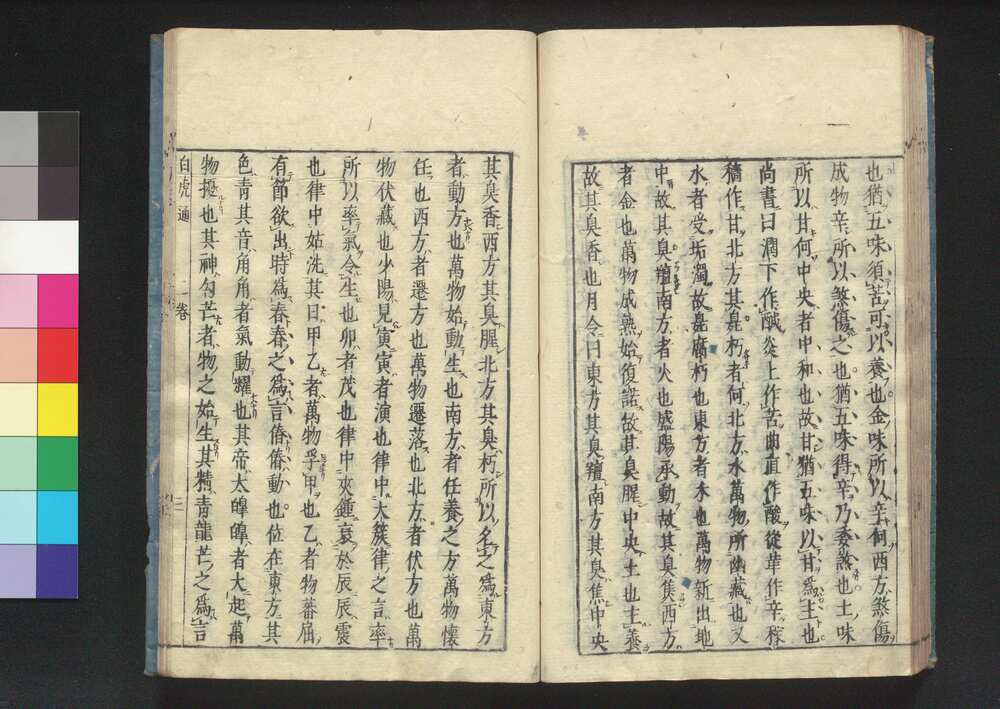 也猶五味須苦可以養也金味所以辛何西方煞傷
成物辛所以煞傷之也猶五味得辛乃委煞也土味
所以甘何中央者中和也故甘猶五味以甘爲主也
尚書曰潤下作醎炎上作苦曲直作酸從革作辛稼
穡作甘北方其臭朽者何北方水萬物所幽藏也又
水者受垢濁故臭腐朽也東方者木也萬物新出地
中故其臭羶南方者火也盛陽承動故其臭焦西方
者金也萬物成熟始復諾故其臭腥中央土也主養
故其臭香也月令曰東方其臭羶南方其臭焦中央
其臭香西方其臭腥北方其臭朽所以名之爲東方
者動方也萬物始動生也南方者任養之方萬物懷
任也西方者遷方也萬物遷落也北方者伏方也萬
物伏藏也少陽見寅寅者演也律中大簇律之言率
所以率氣令生也卯者茂也律中夾鍾衰於辰辰震
也律中姑洗其日甲乙者萬物孚甲也乙者物蕃屈
有節欲出時爲春春之爲言偆偆動也位在東方其
色青其音角角者氣動耀也其帝太皡皡者大起萬
物擾也其神勾芒者物之始生其精青龍芒之爲言
白虎通 二卷 三